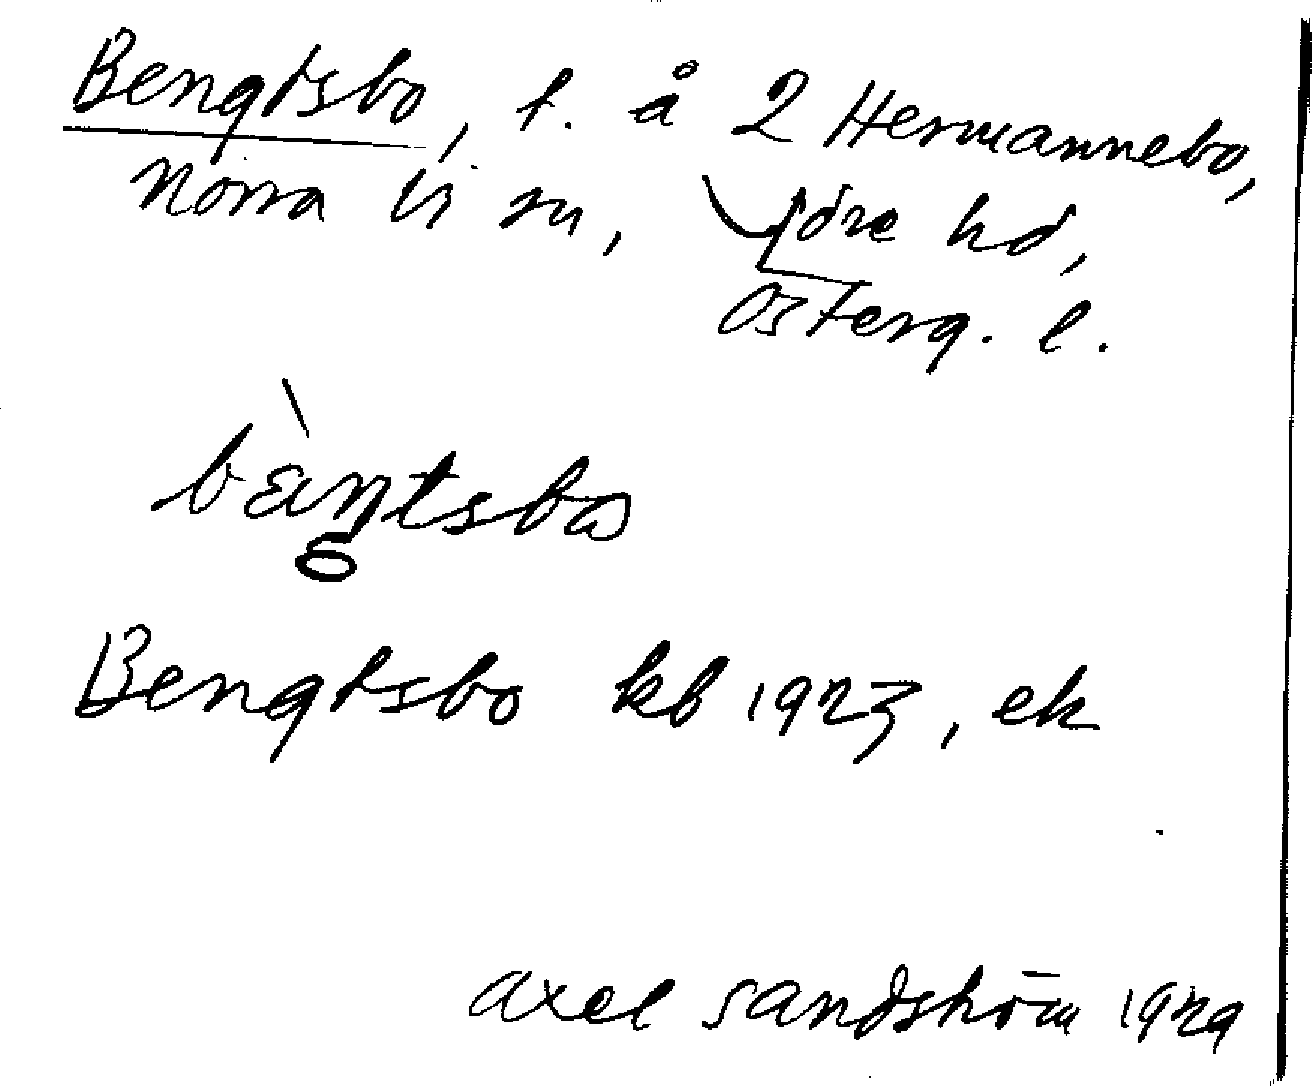 Bengtsbo, t. å 2 Hermannebo,
Norra Vi sn, Ydre hd,
Österg. l.
bàŋtsbo
Bengtsbo kb 1923, ek
Axel Sandström 1929